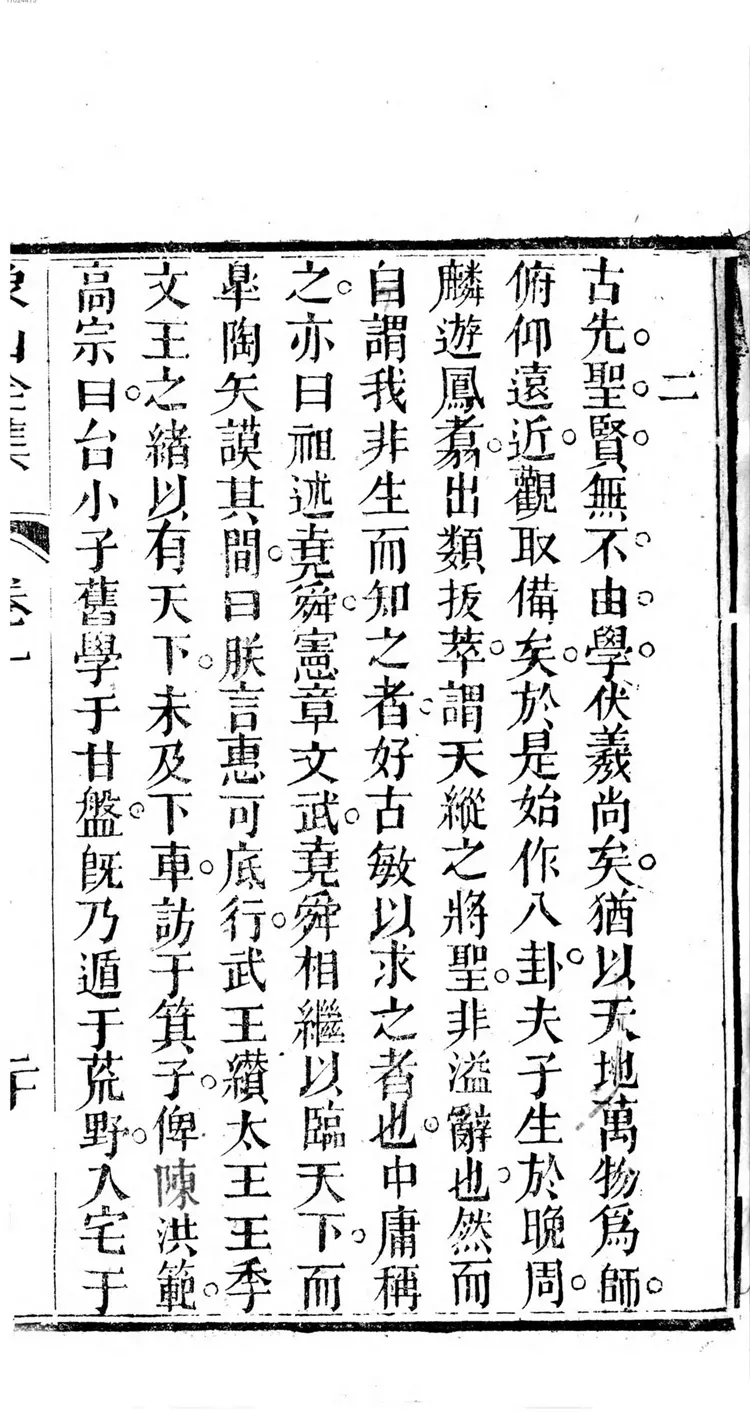 二
古先聖賢無不由學伏羲尚矣猶以天地萬物爲師
俯仰遠近觀取備矣於是始作八卦夫子生於晚周
麟遊鳳翥出類拔萃謂天縱之將聖非溢辭也然而
自謂我非生而知之者好古敏以求之者也中庸稱
之亦曰祖述堯舜憲章文武堯舜相繼以臨天下而
皐陶矢謨其間曰朕言惠可底行武王纘太王王季
文王之緒以有天下未及下車訪于箕子俾陳洪範
高宗曰台小子舊學于甘盤旣乃遁于荒野入宅于
象山全集 卷一 二十